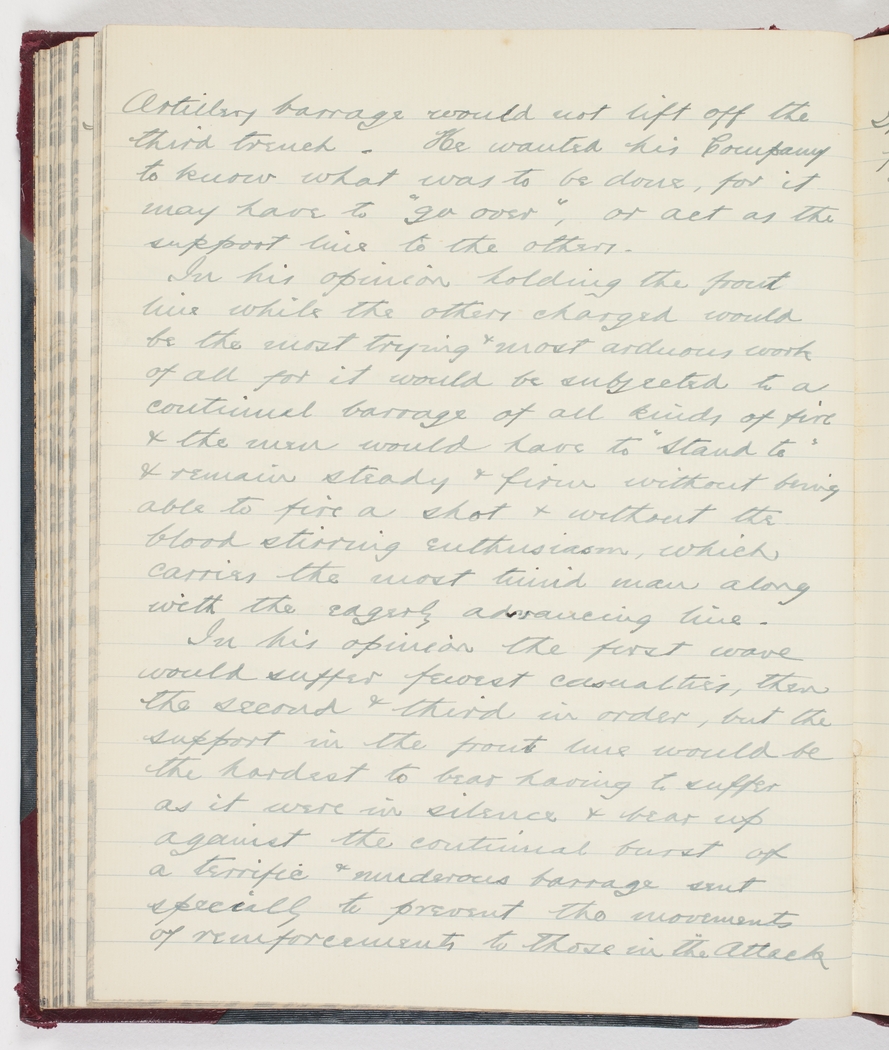 Artillery barrage would not lift off the
third trench - He wanted his Company
to know what was to be done, for it
may have to "go over", or act as the
support line to the others.
In his opinion holding the front
line while the others charged would
be the most trying & most arduous work
of all for it would be subjected to a
continual barrage of all kinds of fire
& the men would have to "stand to"
& remain steady & firm without being
able to fire a shot & without the
blood stirring enthusiasm, which
carries the most timid man along
with the eagerly advancing line.
In his opinion the first wave
would suffer fewest casualties, then
the second & third in order, but the
support in the front line would be
the hardest to bear having to suffer
as it were in silence & bear up
against the continual burst of
a terrific & murderous barrage sent
specially to prevent the movements
of reinforcements to those in the Attack